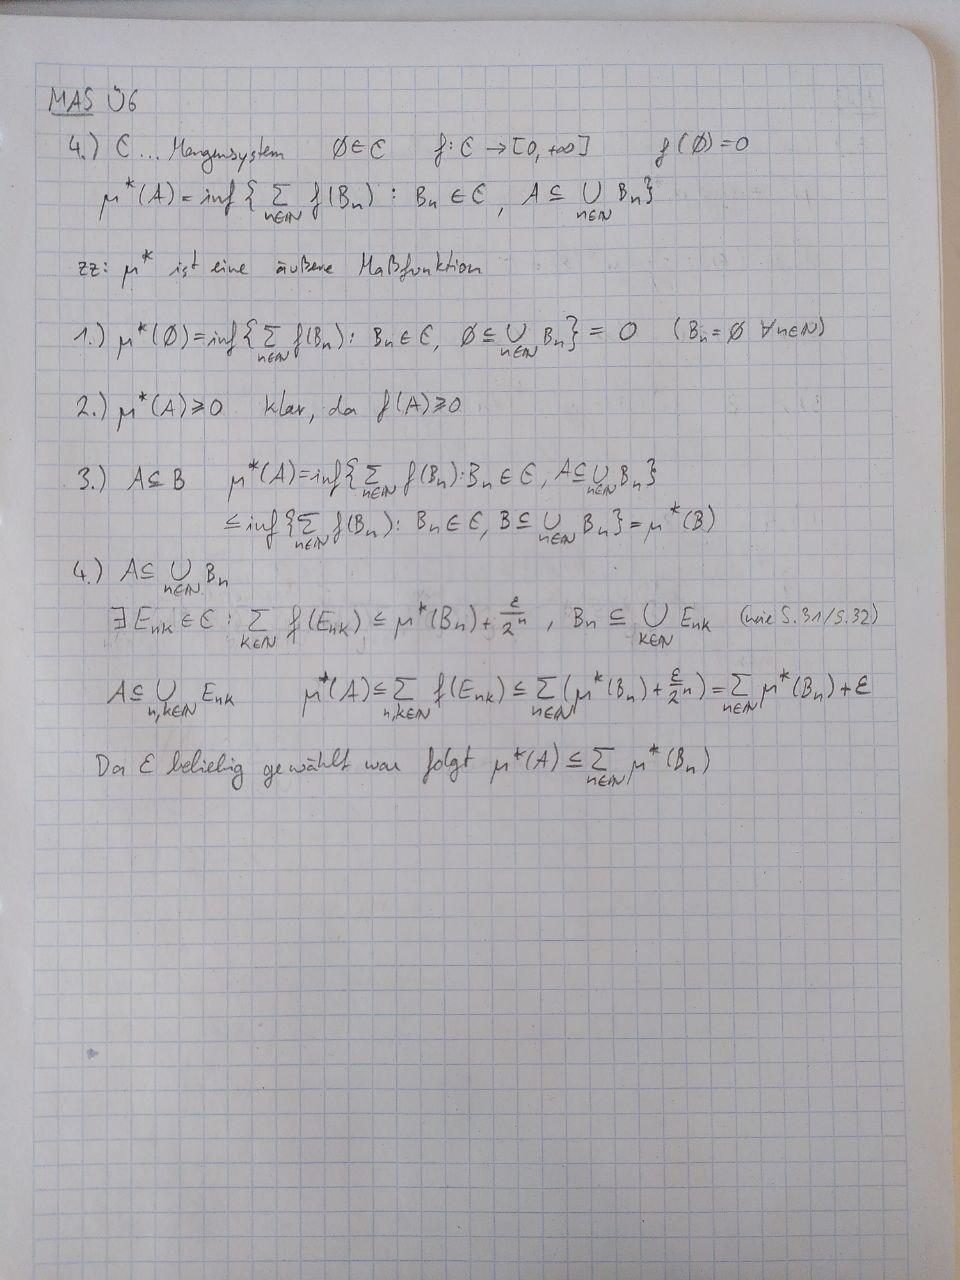 MAS Ü6
4.) C... Mengensystem ∅∈C f: C→[0,+∞] f(∅)=0
μ*(A)=inf{∑_{n∈ℕ} f(B_n) : B_n∈C, A⊆⋃_{n∈ℕ} B_n}
zz: μ* ist eine äußere Maßfunktion
1.) μ*(∅)=inf{∑_{n∈ℕ} f(B_n): B_n∈C, ∅⊆⋃_{n∈ℕ} B_n} = 0 (B_n=∅ ∀n∈ℕ)
2.) μ*(A)≥0 klar, da f(A)≥0
3.) A⊆B μ*(A)=inf{∑_{n∈ℕ} f(B_n): B_n∈C, A⊆⋃_{n∈ℕ} B_n}
≤inf{∑_{n∈ℕ} f(B_n): B_n∈C, B⊆⋃_{n∈ℕ} B_n}=μ*(B)
4.) A⊆⋃_{n∈ℕ} B_n
∃E_{nk}∈C: ∑_{k∈ℕ} f(E_{nk})≤μ*(B_n)+ε/2^n, B_n⊆⋃_{k∈ℕ} E_{nk} (wie S.31/S.32)
A⊆⋃_{n,k∈ℕ} E_{nk} μ*(A)≤∑_{n,k∈ℕ} f(E_{nk})≤∑_{n∈ℕ}(μ*(B_n)+ε/2^n)=∑_{n∈ℕ} μ*(B_n)+ε
Da ε beliebig gewählt war folgt μ*(A)≤∑_{n∈ℕ} μ*(B_n)